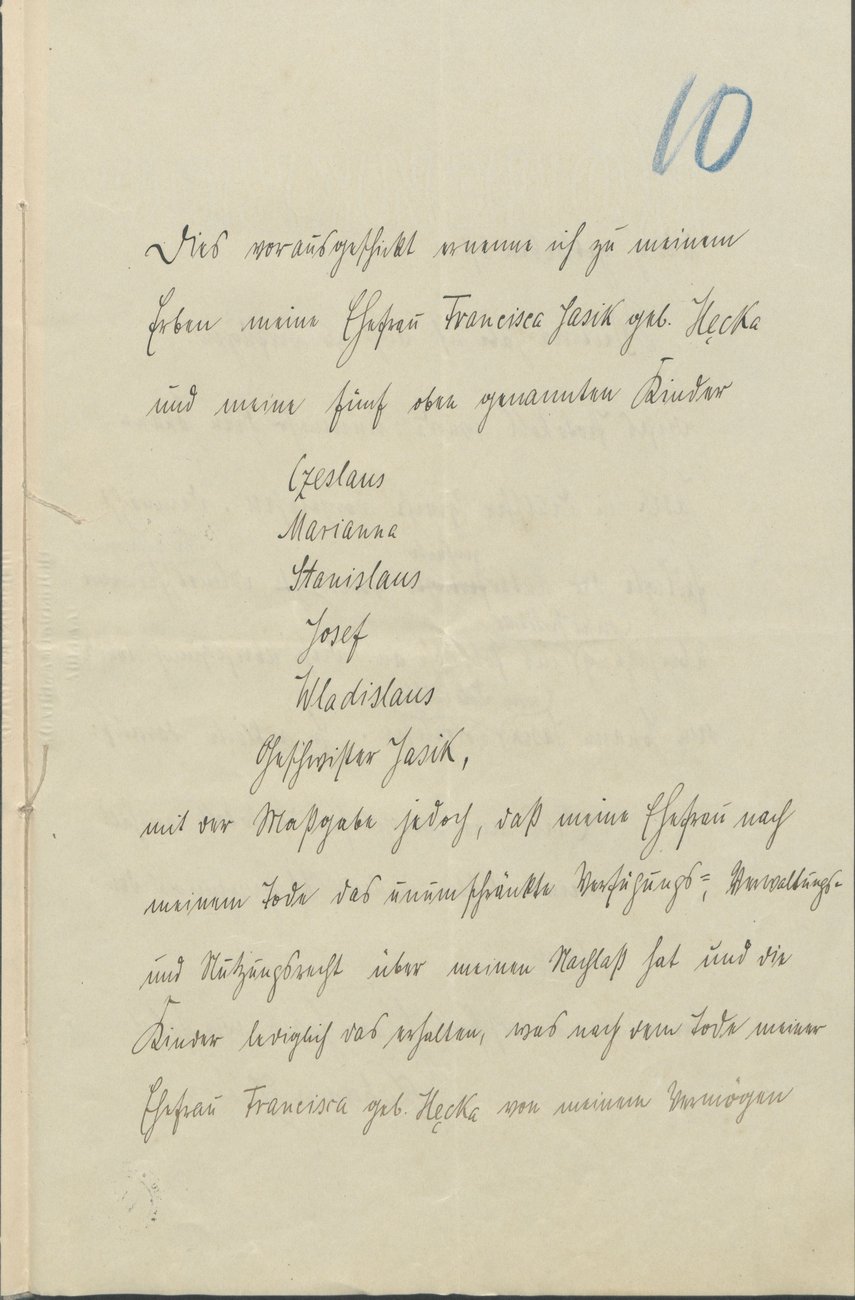 10
Dies vorausgeschickt ernenne ich zu meinem
Erben meine Ehefrau Francisca Jasik geb. Hęcka
und meine fünf oben genannten Kinder
Czeslaus
Marianna
Stanislaus
Josef
Wladislaus
Geschwister Jasik,
mit der Maßgabe jedoch, daß meine Ehefrau nach
meinem Tode das unumschränkte Verfügungs=, Verwaltungs=
und Nutzungsrecht über meinen Nachlaß hat und die
Kinder lediglich das erhalten, was nach dem Tode meiner
Ehefrau Francisca geb. Hęcka von meinem Vermögen